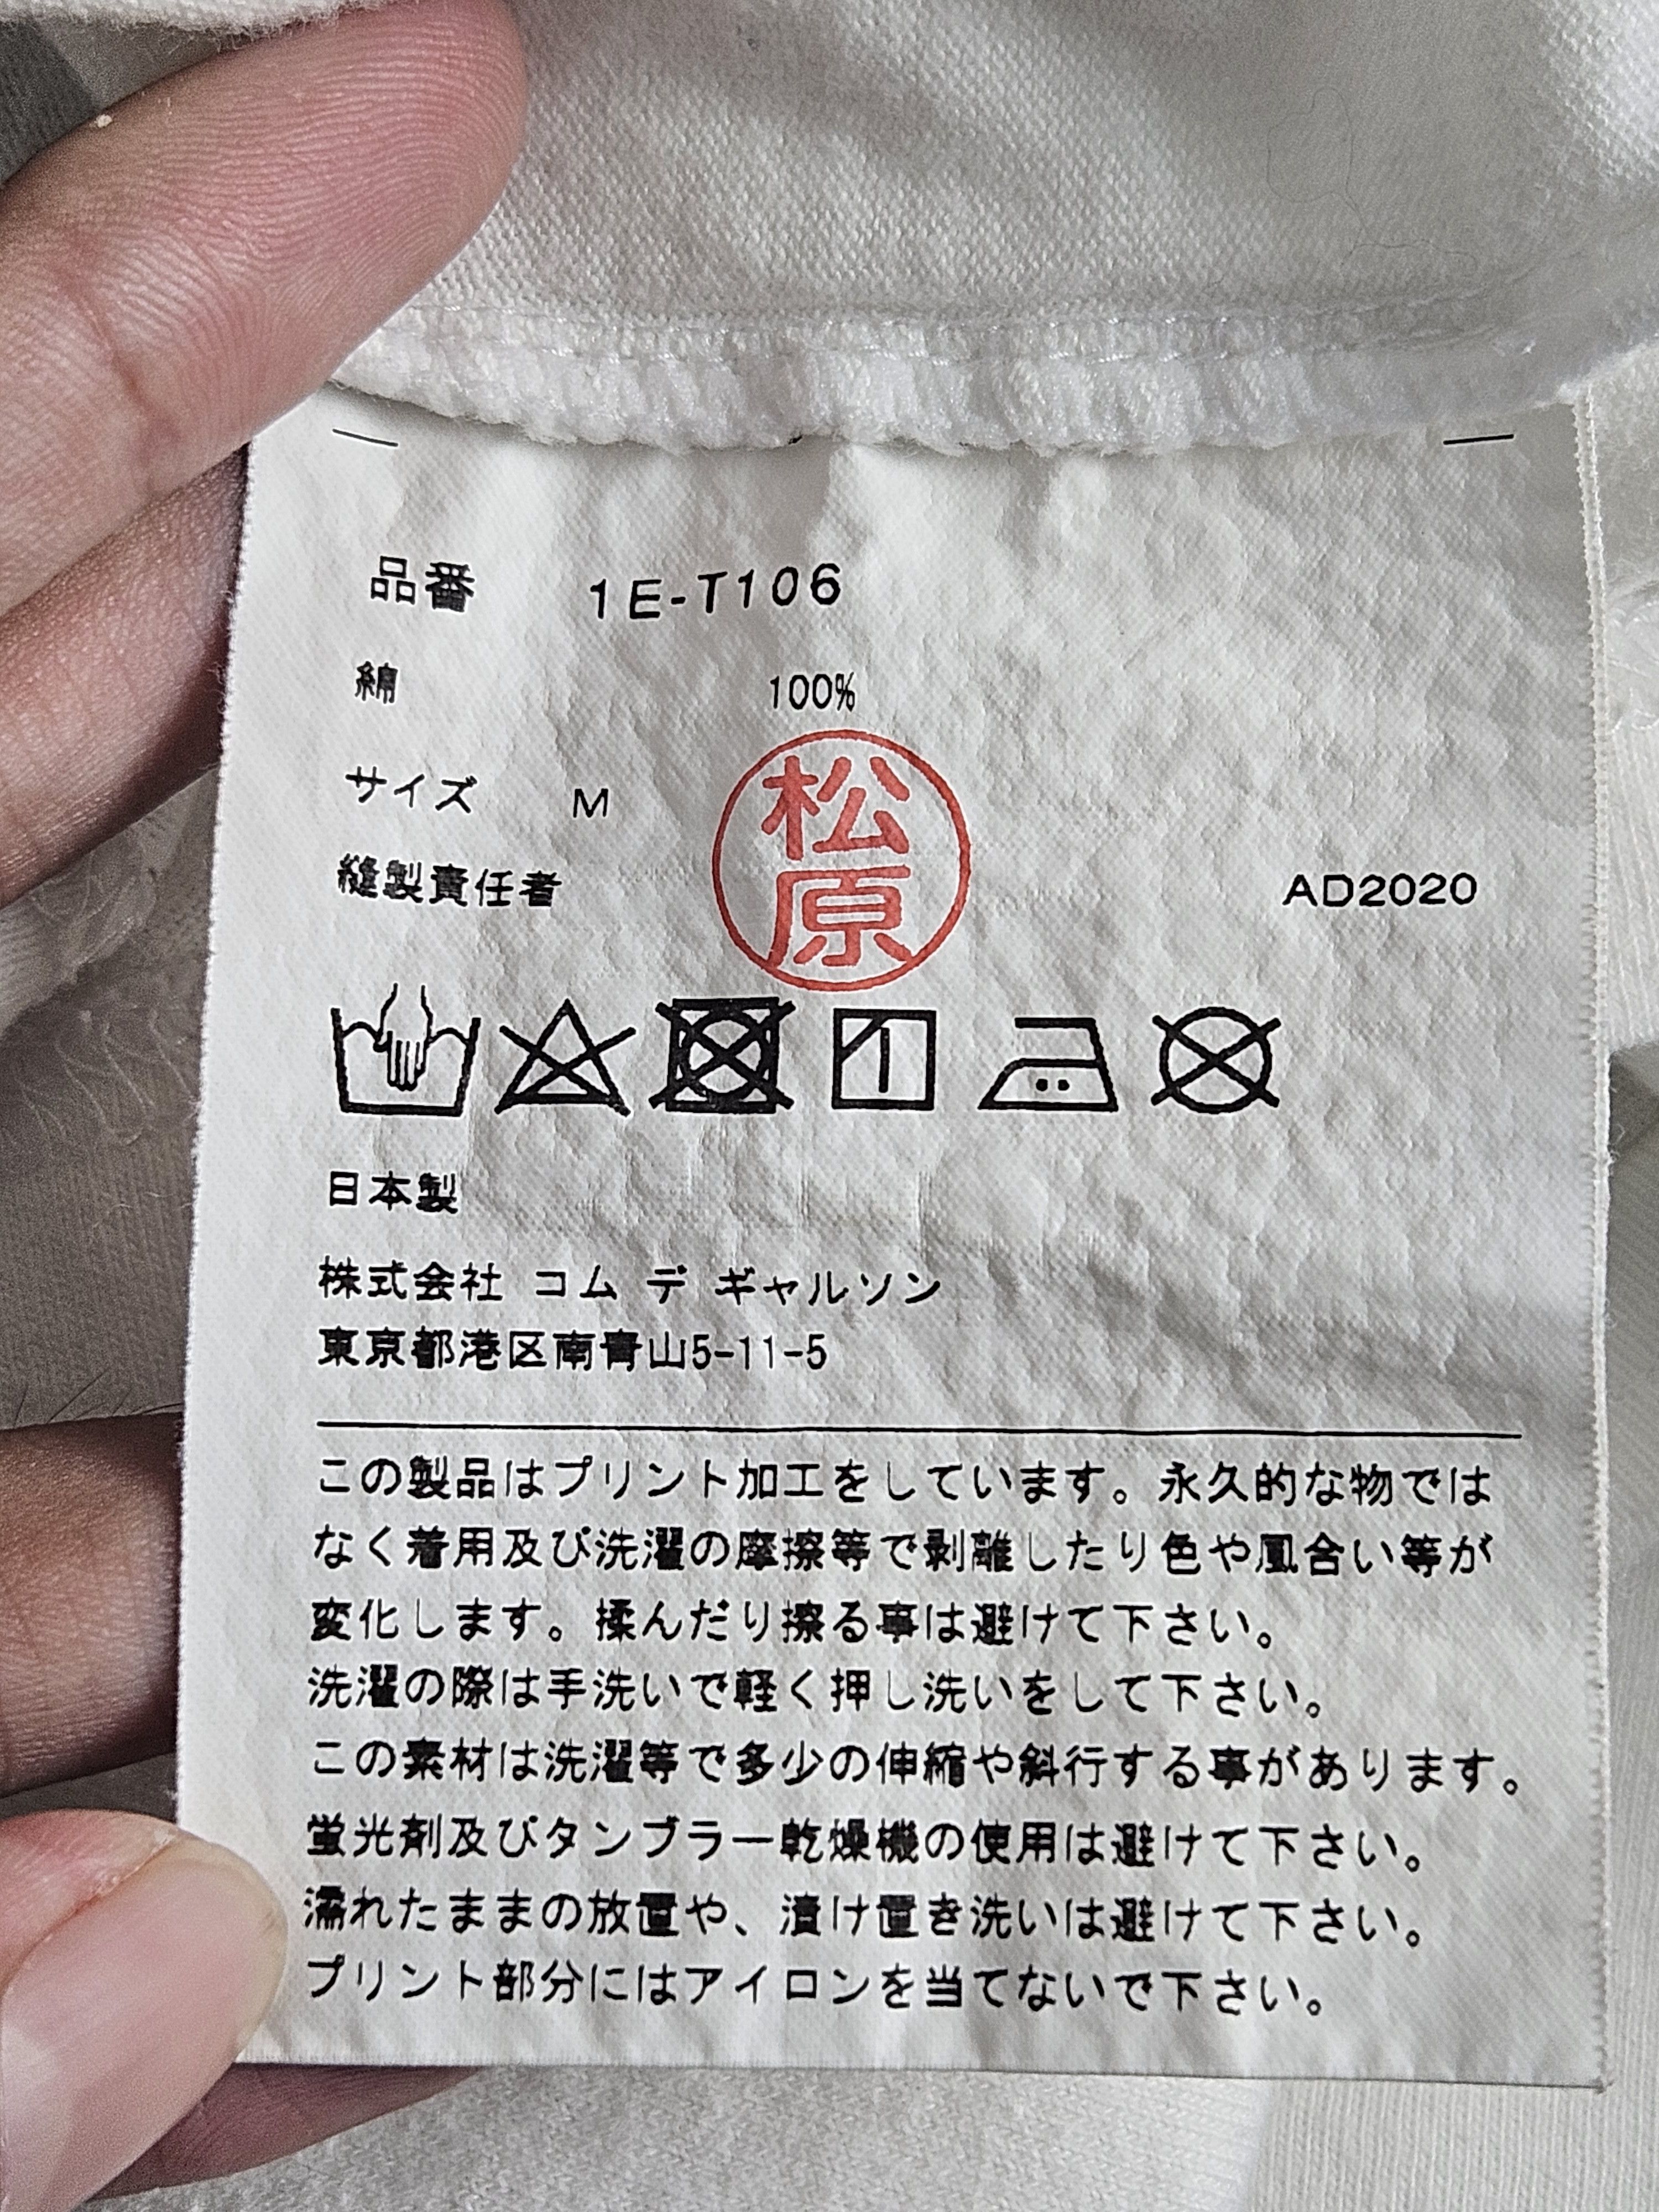 品番 1E-T106
綿 100%
サイズ M
松原
縫製責任者 AD2020
日本製
株式会社 コム デ ギャルソン
東京都港区南青山5-11-5
この製品はプリント加工をしています。永久的な物では
なく着用及び洗濯の摩擦等で剥離したり色や風合い等が
変化します。揉んだり擦る事は避けて下さい。
洗濯の際は手洗いで軽く押し洗いをして下さい。
この素材は洗濯等で多少の伸縮や斜行する事があります。
蛍光剤及びタンブラー乾燥機の使用は避けて下さい。
濡れたままの放置や、漬け置き洗いは避けて下さい。
プリント部分にはアイロンを当てないで下さい。